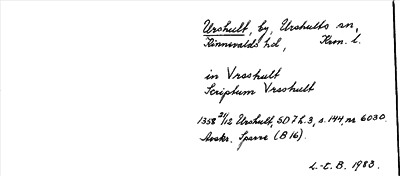 Urshult, by, Urshults sn,
Kinnevalds hd, Kron. l.
in Vrsshult
Scriptum Vrsshult
1358 21/12 Urshult, SD 7 h. 3, s. 144, nr 6030.
Avskr. Sparre (B 16).
L-E. B. 1983.